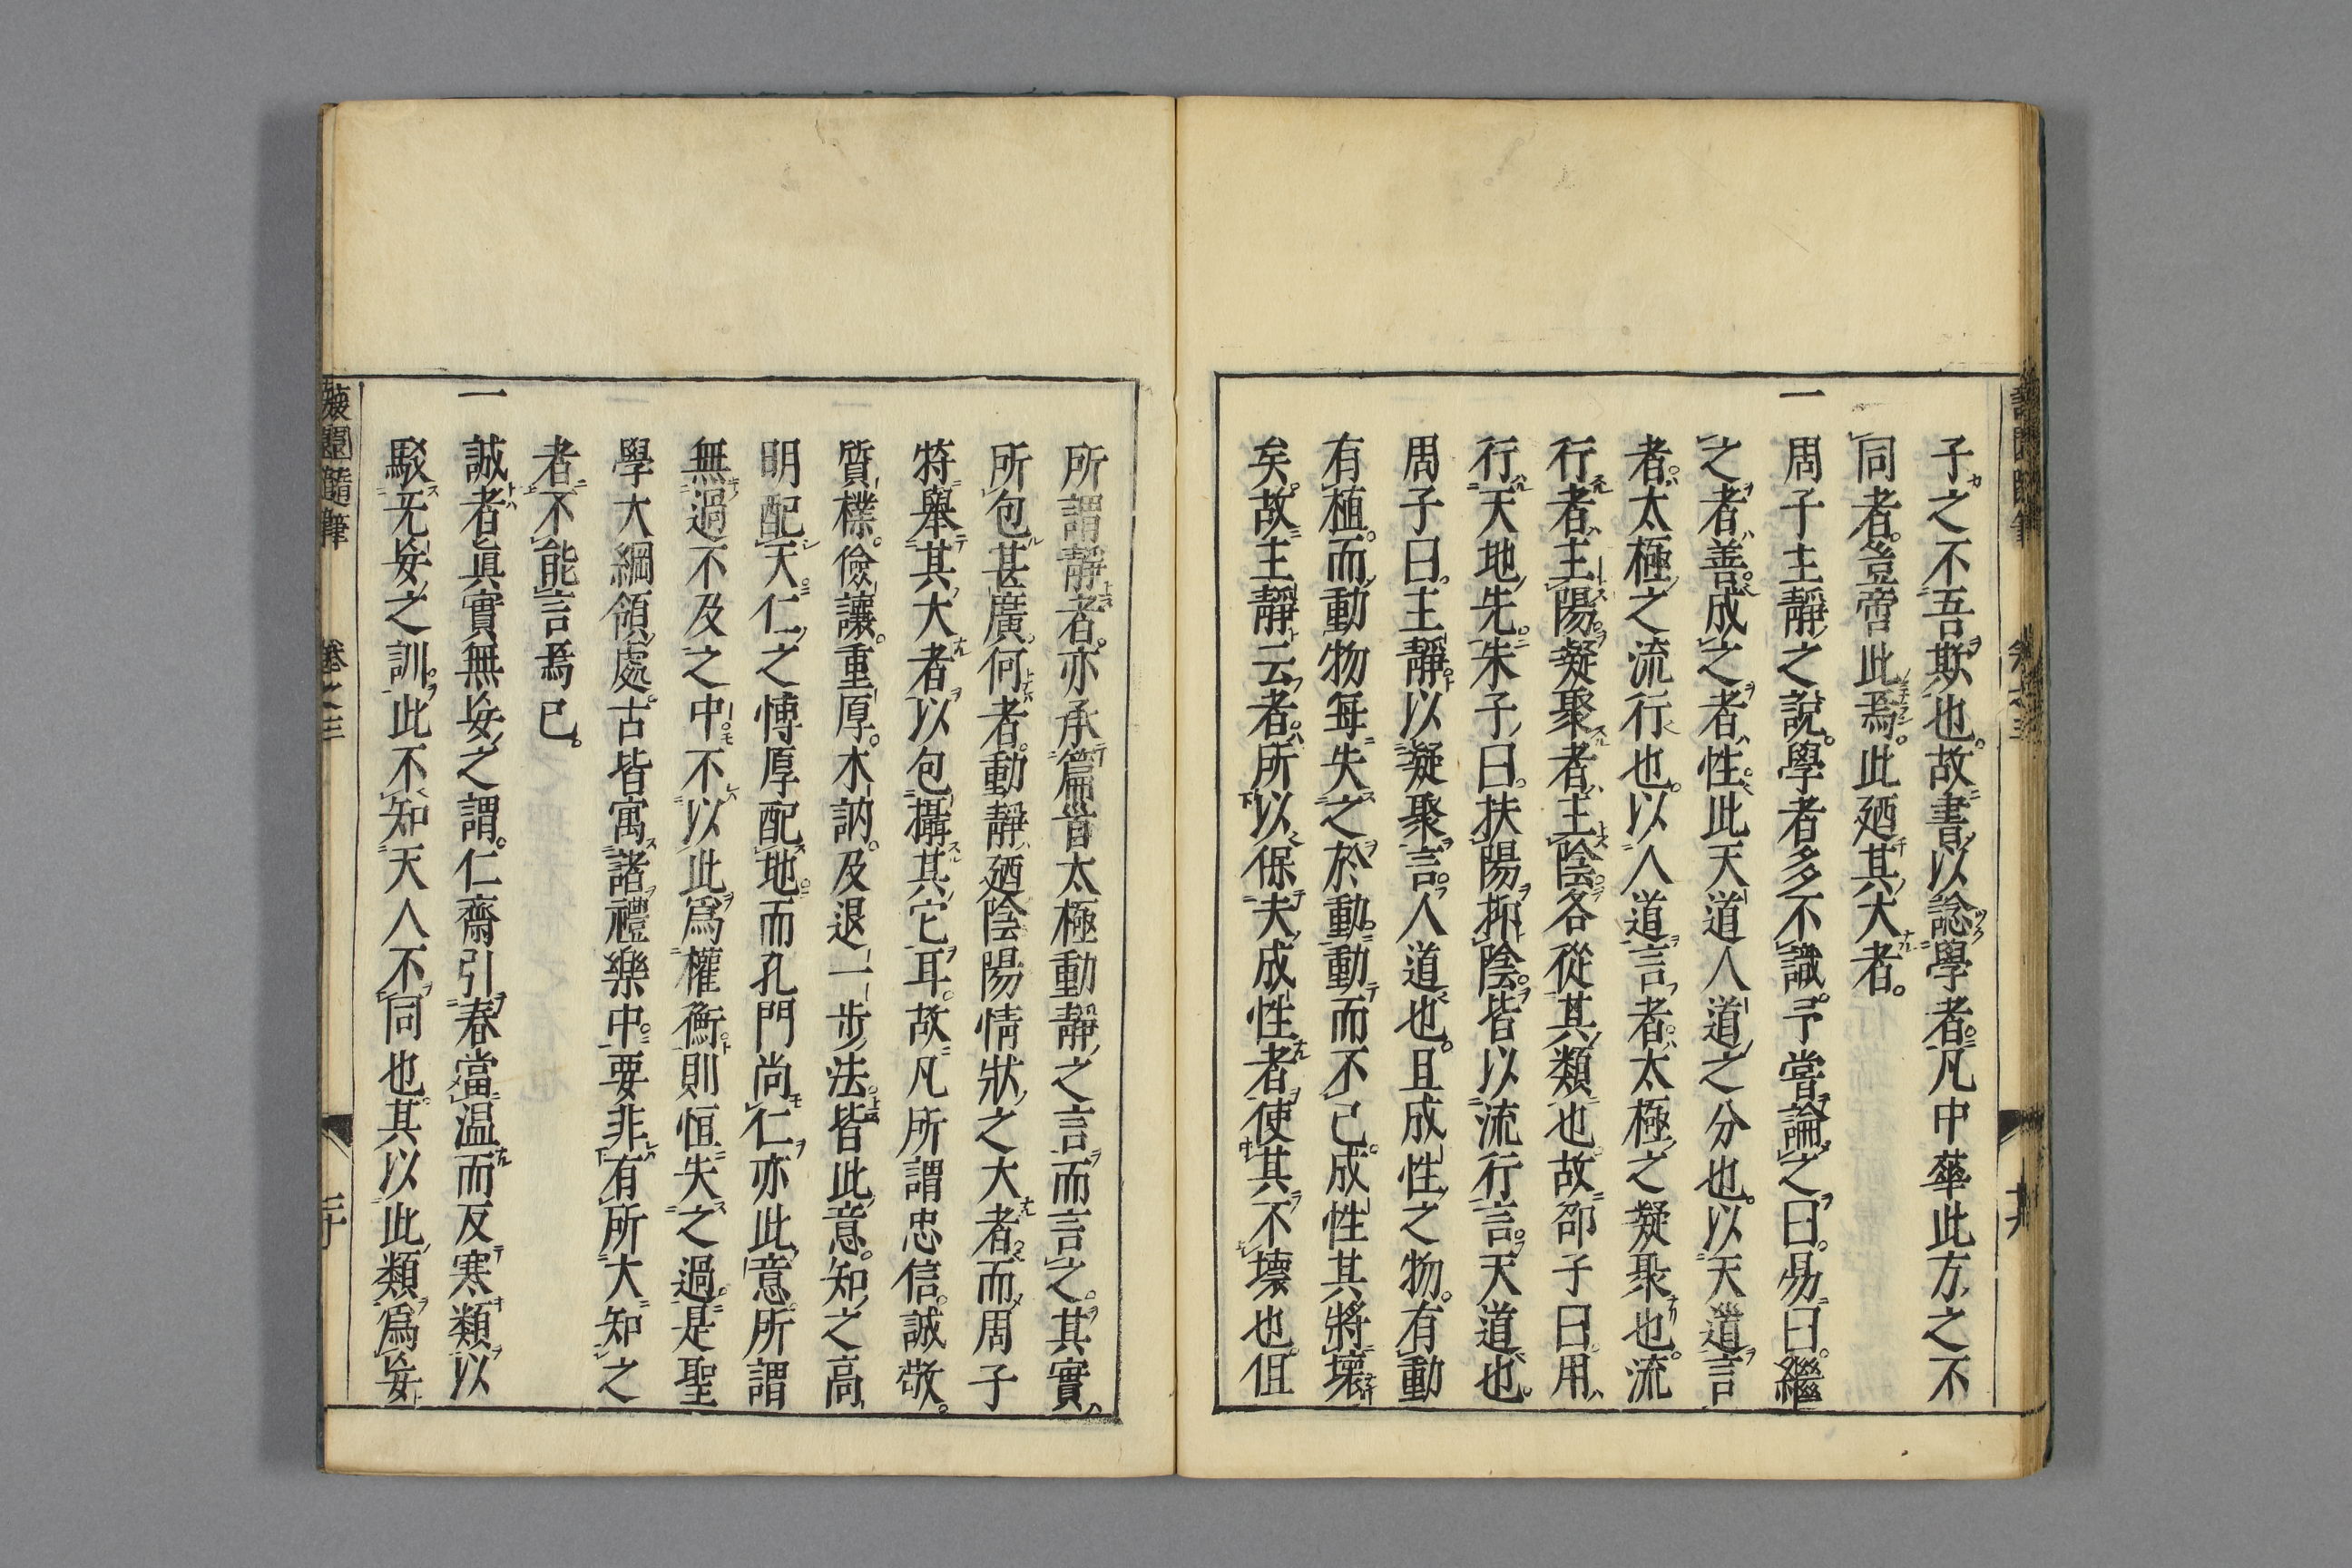 子之不吾欺也。故書以諗學者。凡中華此方之不
同者。豈啻此焉。此廼其大者。
一周子主靜之說。學者多不識。予嘗論之曰。易曰。繼
之者善。成之者性。此天道人道之分也。以天道言
者。太極之流行也。以人道言者。太極之凝聚也。流
行者主陽。凝聚者主陰。各從其類也。故邵子曰。用
行天地先。朱子曰。扶陽抑陰。皆以流行言。天道也。
周子曰。主靜。以凝聚言。人道也。且成性之物。有動
有植。而動物每失之於動。動而不已。成性其將壞
矣。故主靜云者。所以保夫成性者。使其不壞也。但
所謂靜者。亦承篇首太極動靜之言而言之。其實
所包甚廣。何者。動靜廼陰陽情狀之大者。而周子
特舉其大者。以包攝其它耳。故凡所謂忠信。誠敬。
質樸。儉讓。重厚。木訥。及退一步法。皆此意。知之高
明配天。仁之博厚配地。而孔門尚仁。亦此意。所謂
無過不及之中。不以此爲權衡。則恒失之過。是聖
學大綱領處。古皆寓諸禮樂中。要非有所大知之
者。不能言焉已。
一誠者眞實無妄之謂。仁齋引春當温而反寒類。以
駁无妄之訓。此不知天人不同也。其以此類爲妄
蘐園隨筆 卷之三 二十